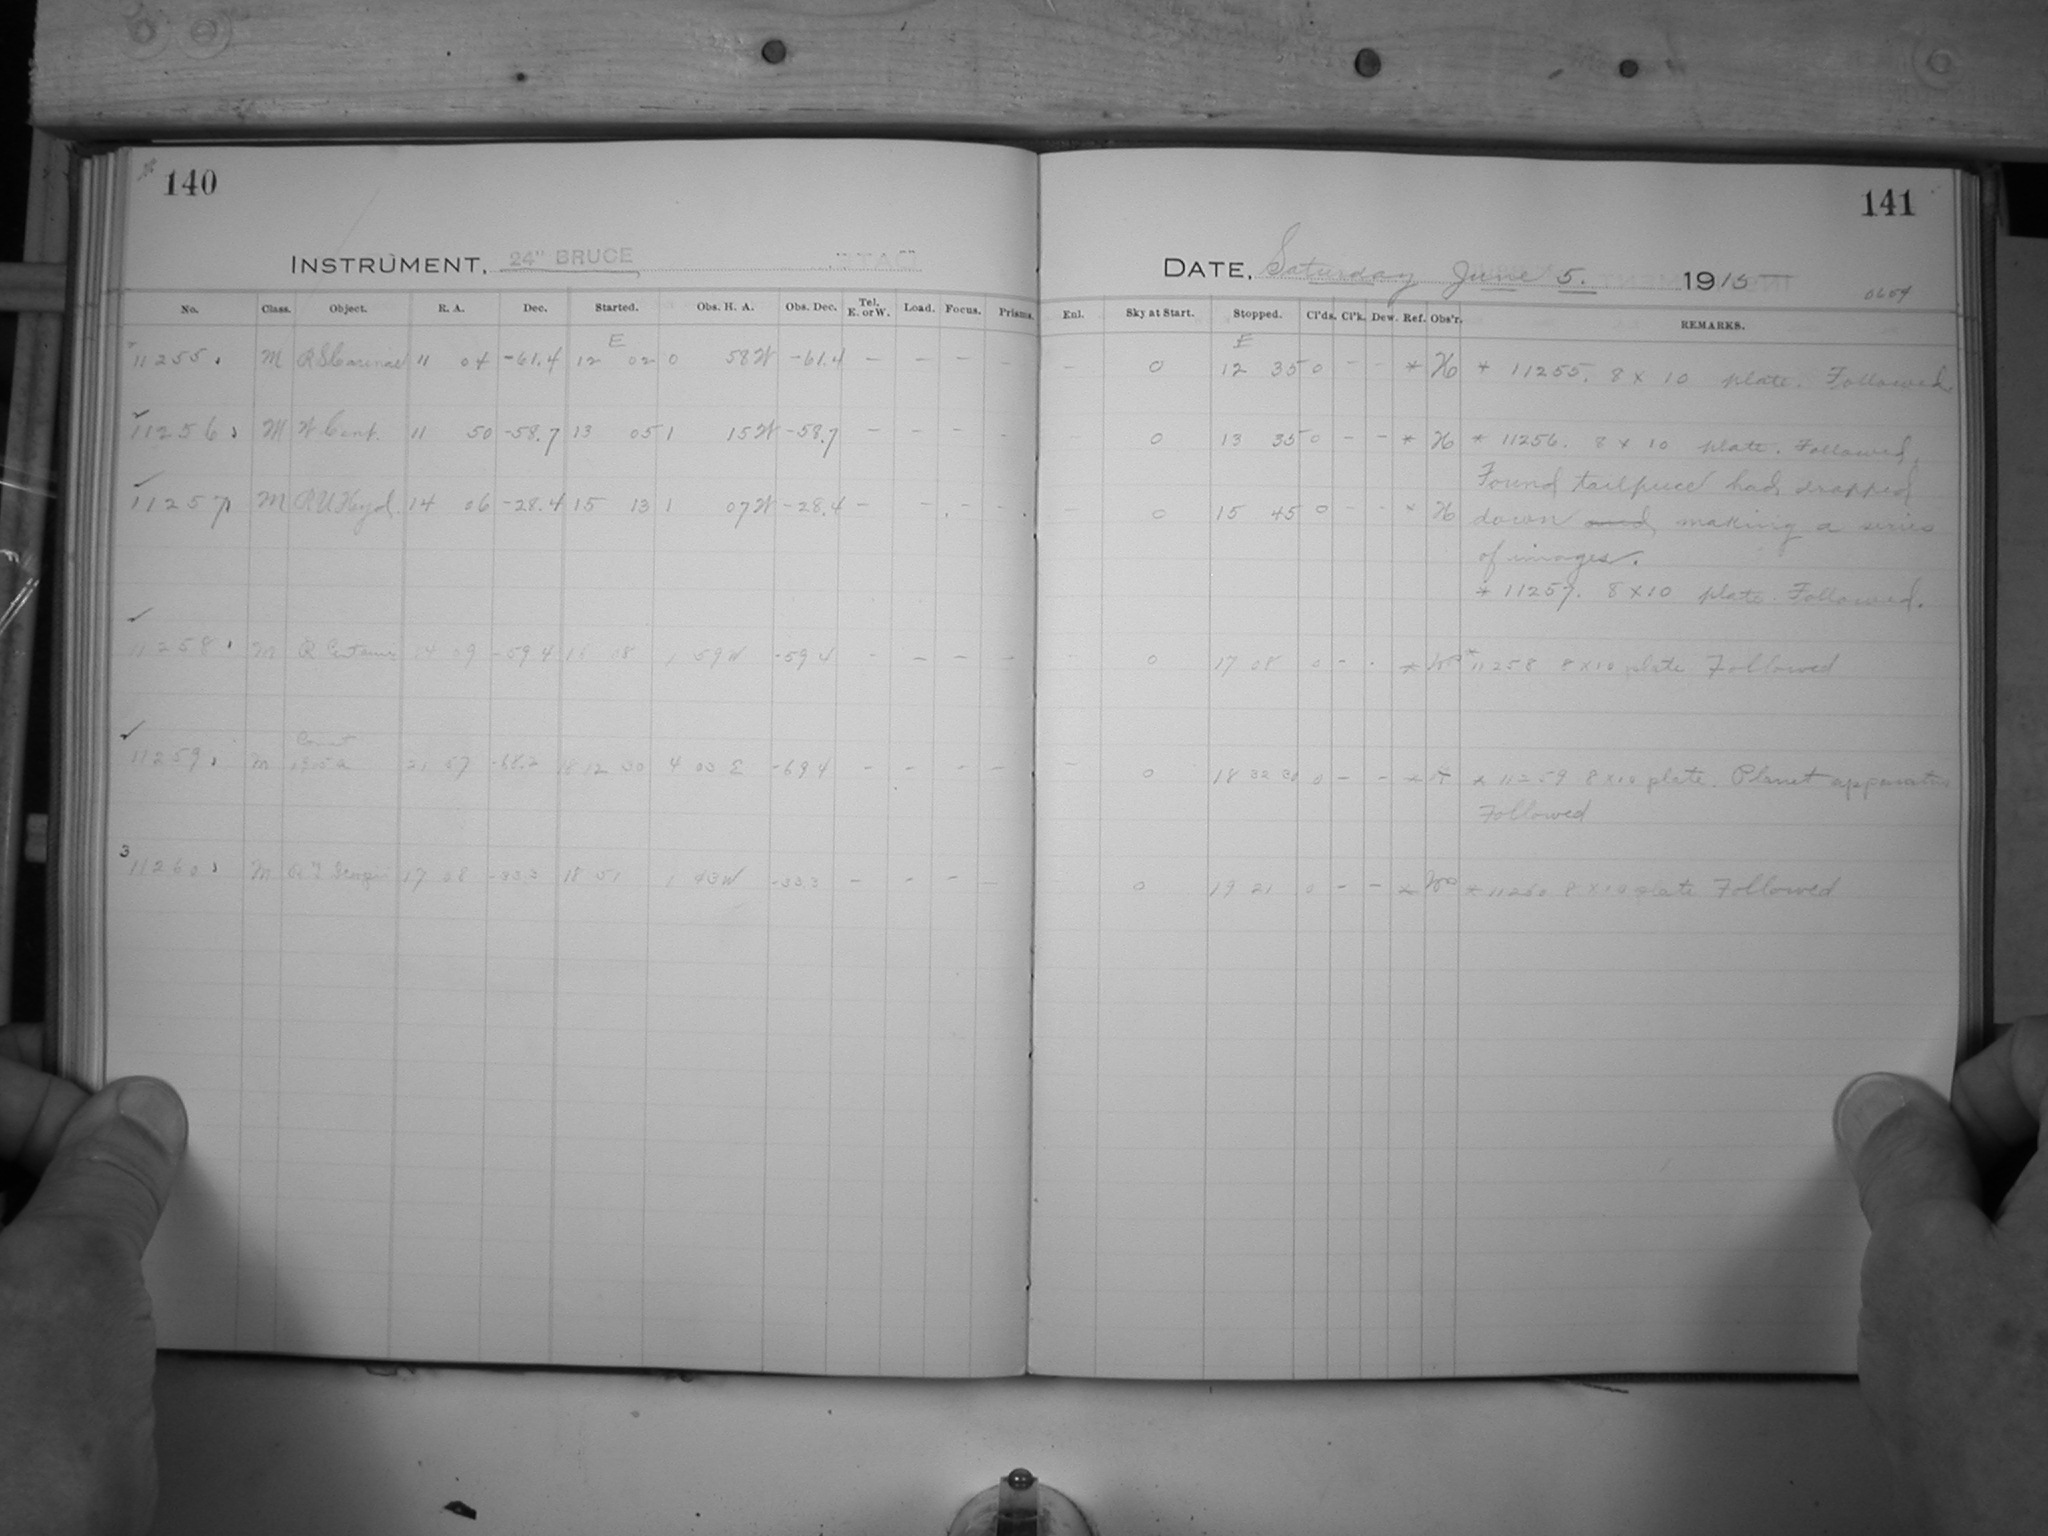 140
INSTRUMENT, 24" BRUCE
No. Class. Object. R. A. Dec. Started. Obs. H. A. Obs. Dec. Tel. E. or W. Load. Focus. Prisms.
E
11255. M RS Carinae 11 04 -61.4 12 02 0 58 W -61.4 - - - -
11256. M W Cent. 11 50 -58.7 13 05 1 15 W -58.7 - - - -
11257. M RU Hyd. 14 06 -28.4 15 13 1 07 W -28.4 - - - -
11258. M R Centauri 14 09 -59 4 16 08 1 59 W -59 4 - - - -
Comet
11259. M 1915a 21 57 -68.2 18 12 30 4 03 E -69 4 - - - -
3
11260. M 17 08 -33.3 18 51 1 43 W -33 3 - - - -
141
DATE, Saturday June 5. 1915
Enl. Sky at Start. Stopped. Cl'ds. Cl'k. Dew. Ref. Obs'r. REMARKS.
E
- 0 12 35 0 - - * * 11255. 8 x 10 plate. Followed
- 0 13 35 0 - - * * 11256. 8 x 10 plate. Followed.
Found tailpiece had dropped
- 0 15 45 0 - - * down and making a series
of images.
* 11257. 8 x 10 plate. Followed.
- 0 17 08 0 - - * * 11258 8 x 10 plate Followed
- 0 18 32 30 0 - - * * 11259 8 x 10 plate. Planet apparatus
Followed
0 19 21 0 - - * * 11260 8 x 10 plate Followed